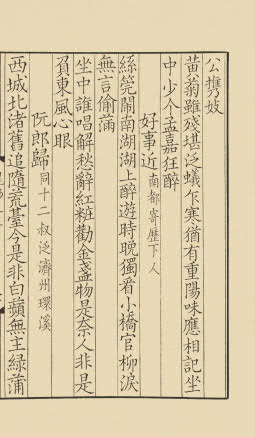 公攜妓
黃菊雖殘堪泛蟻乍寒猶有重陽味應相記坐
中少个孟嘉狂醉
好事近南都寄歷下人
絲筦鬧南湖湖上醉遊時晚獨看小橋官柳淚
無言偷滿
坐中誰唱解愁辭紅粧勸金盞物是奈人非是
負東風心眼
阮郎歸同十二叔泛濟州環溪
西城北渚舊追隨荒臺今是非白蘋無主綠蒲